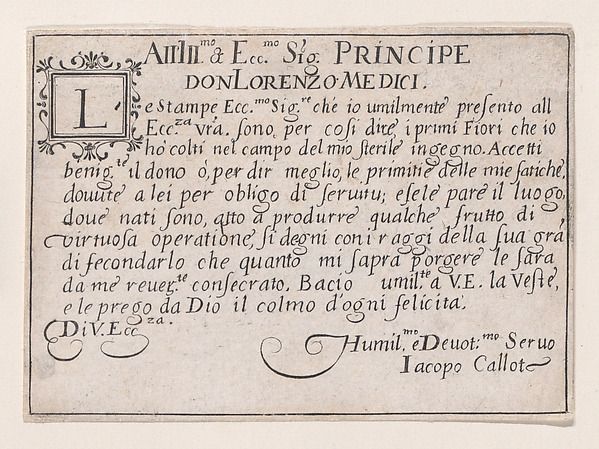 All' Ill.mo & Ecc.mo Sig.r PRINCIPE
DON LORENZO MEDICI.
Le Stampe Ecc.mo Sig.re che io umilmente presento all
Ecc.za vrã. sono, per cosi dire, i primi Fiori che io
hò colti nel campo del mio sterile ingegno. Accetti
benig.te il dono ò, per dir meglio, le primitie delle mie fatiche,
douute a lei per obligo di seruitu; e se le pare il luogo,
doue nati sono, atto à produrre qualche frutto di
virtuosa operatione, si degni con i raggi della sua grã
di fecondarlo che quanto mi saprà porgere le sarà
da me reuer.te consecrato. Bacio umil.te a V.E. la Veste,
e le prego da Dio il colmo d'ogni felicità.
Di V. Ecc.za.
Humil.mo e Deuot:mo Seruo
Iacopo Callot